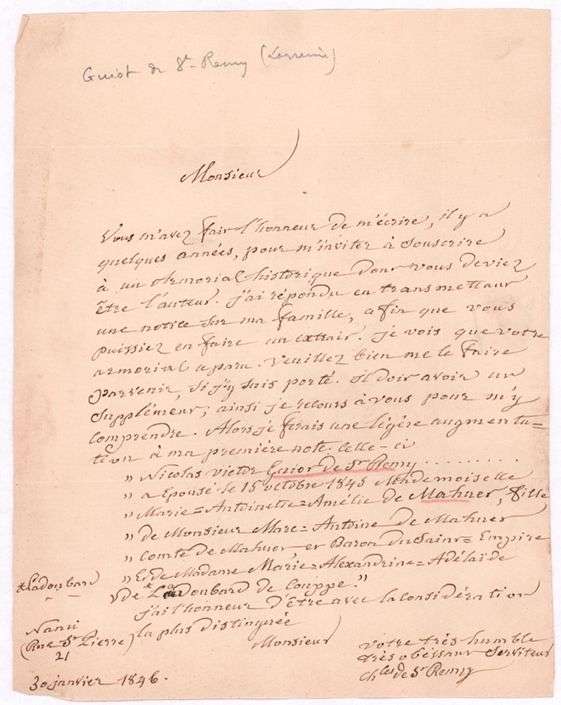 Guiot de St. Remy (Lorraine)
Monsieur
Vous m'avez fair l'honneur de m'écrire, il y a
quelques années, pour m'inviter à souscrire
à un Armorial historique dont vous deviez
être l'auteur. J'ai répondu en transmettant
une notice sur ma famille, afin que vous
puissiez en faire un extrait. Je vois que votre
armorial a paru. Veuillez bien me le faire
parvenir, si j'y suis porté. Il doit avoir un
supplément; ainsi je recours à vous pour m'y
comprendre. Alors je ferais une légère augmenta=
tion à ma première note. Celle-ci
" Nicolas Victor Guiot de St Remy ..........
" a épousé le 15 octobre 1845 Mademoiselle
" Marie=Antoinette=Amélie de Mahuet, fille
" de Monsieur Marc=Antoine de Mahuet
" Comte de Mahuet, et Baron du Saint=Empire
" Et de Madame Marie=Alexandrine=Adélaïde
" de Ladoubard de Couppe."
*Ladoubard
J'ai l'honneur d'être avec la considération
la plus distinguée
Monsieur
votre très humble
très obéissant Serviteur
Ch.les de St Remy
Nanci
(Rue St Pierre)
21
30 janvier 1846.